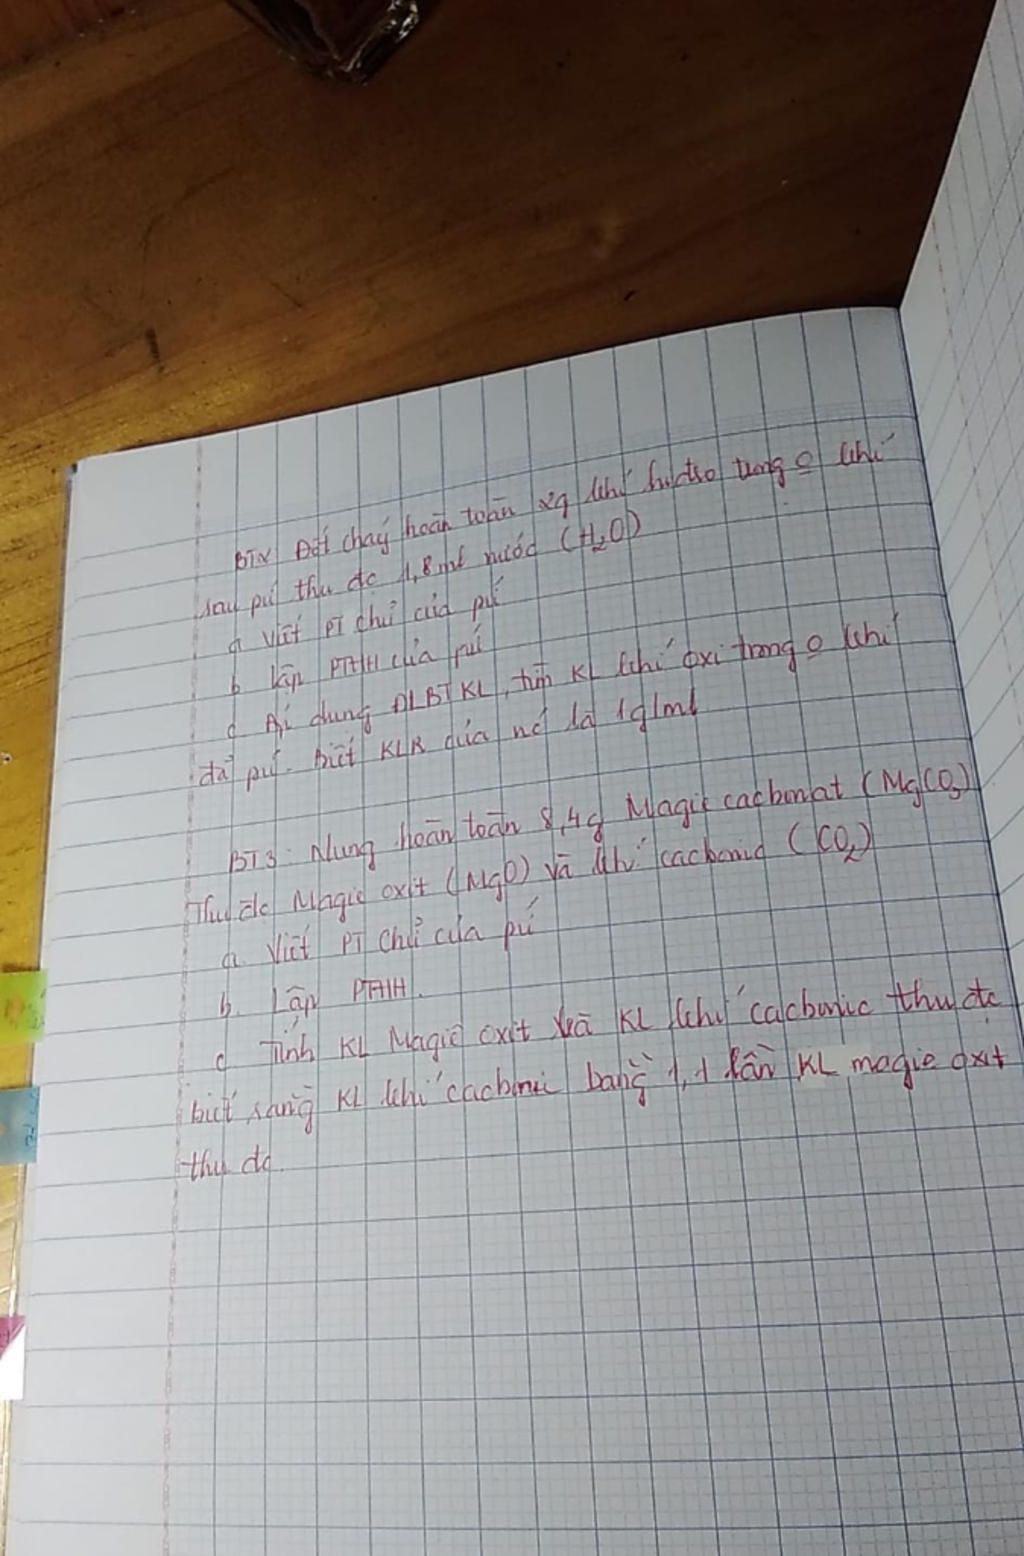 Đốt cháy hoàn toàn khí hiđro trong o khí
sau pứ thu đc 1,8 ml nước (H₂O)
a Viết PT chữ của pứ
b lập PTHH của pứ
c Áp dụng ĐLBTKL, tìm KL khí oxi trong o khí
đã pứ. biết KLR của nc là 1g/ml
BT3. Nung hoàn toàn 8,4g Magie cacbonat (MgCO₃)
Thu đc Magie oxit (MgO) và khí cacbonic (CO₂)
a. Viết PT chữ của pứ
b. Lập PTHH.
c Tính KL Magie oxit và KL khí cacbonic thu đc
biết rằng KL khí cacbonic bằng 1,1 lần KL magie oxit
thu đc.